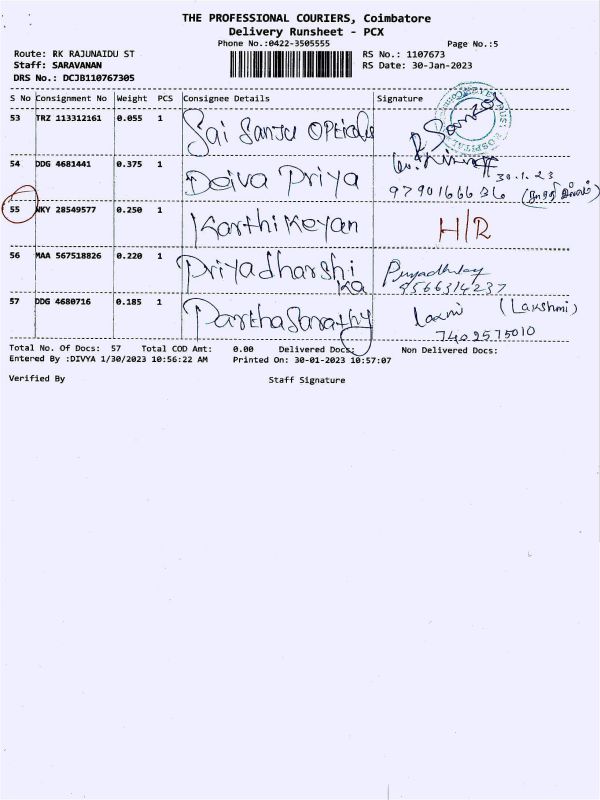 THE PROFESSIONAL COURIERS, Coimbatore
Delivery Runsheet - PCX
Phone No.:0422-3505555
Page No.:5
Route: RK RAJUNAIDU ST
RS No.: 1107673
Staff: SARAVANAN
RS Date: 30-Jan-2023
DRS No.: DCJB110767305
S No Consignment No Weight PCS Consignee Details Signature
53 TRZ 113312161 0.055 1 Sai Sanju OPticals
54 DDG 4681441 0.375 1 Deiva Priya
30.1.23
9790166636
55 NKY 28549577 0.250 1 Karthikeyan H/R
56 MAA 567518826 0.220 1 Priyadharshi
ka 9566314237
57 DDG 4680716 0.185 1 Parthasarathy Laxmi (Lakshmi)
7402575010
Total No. Of Docs: 57 Total COD Amt: 0.00 Delivered Docs: Non Delivered Docs:
Entered By :DIVYA 1/30/2023 10:56:22 AM Printed On: 30-01-2023 10:57:07
Verified By Staff Signature